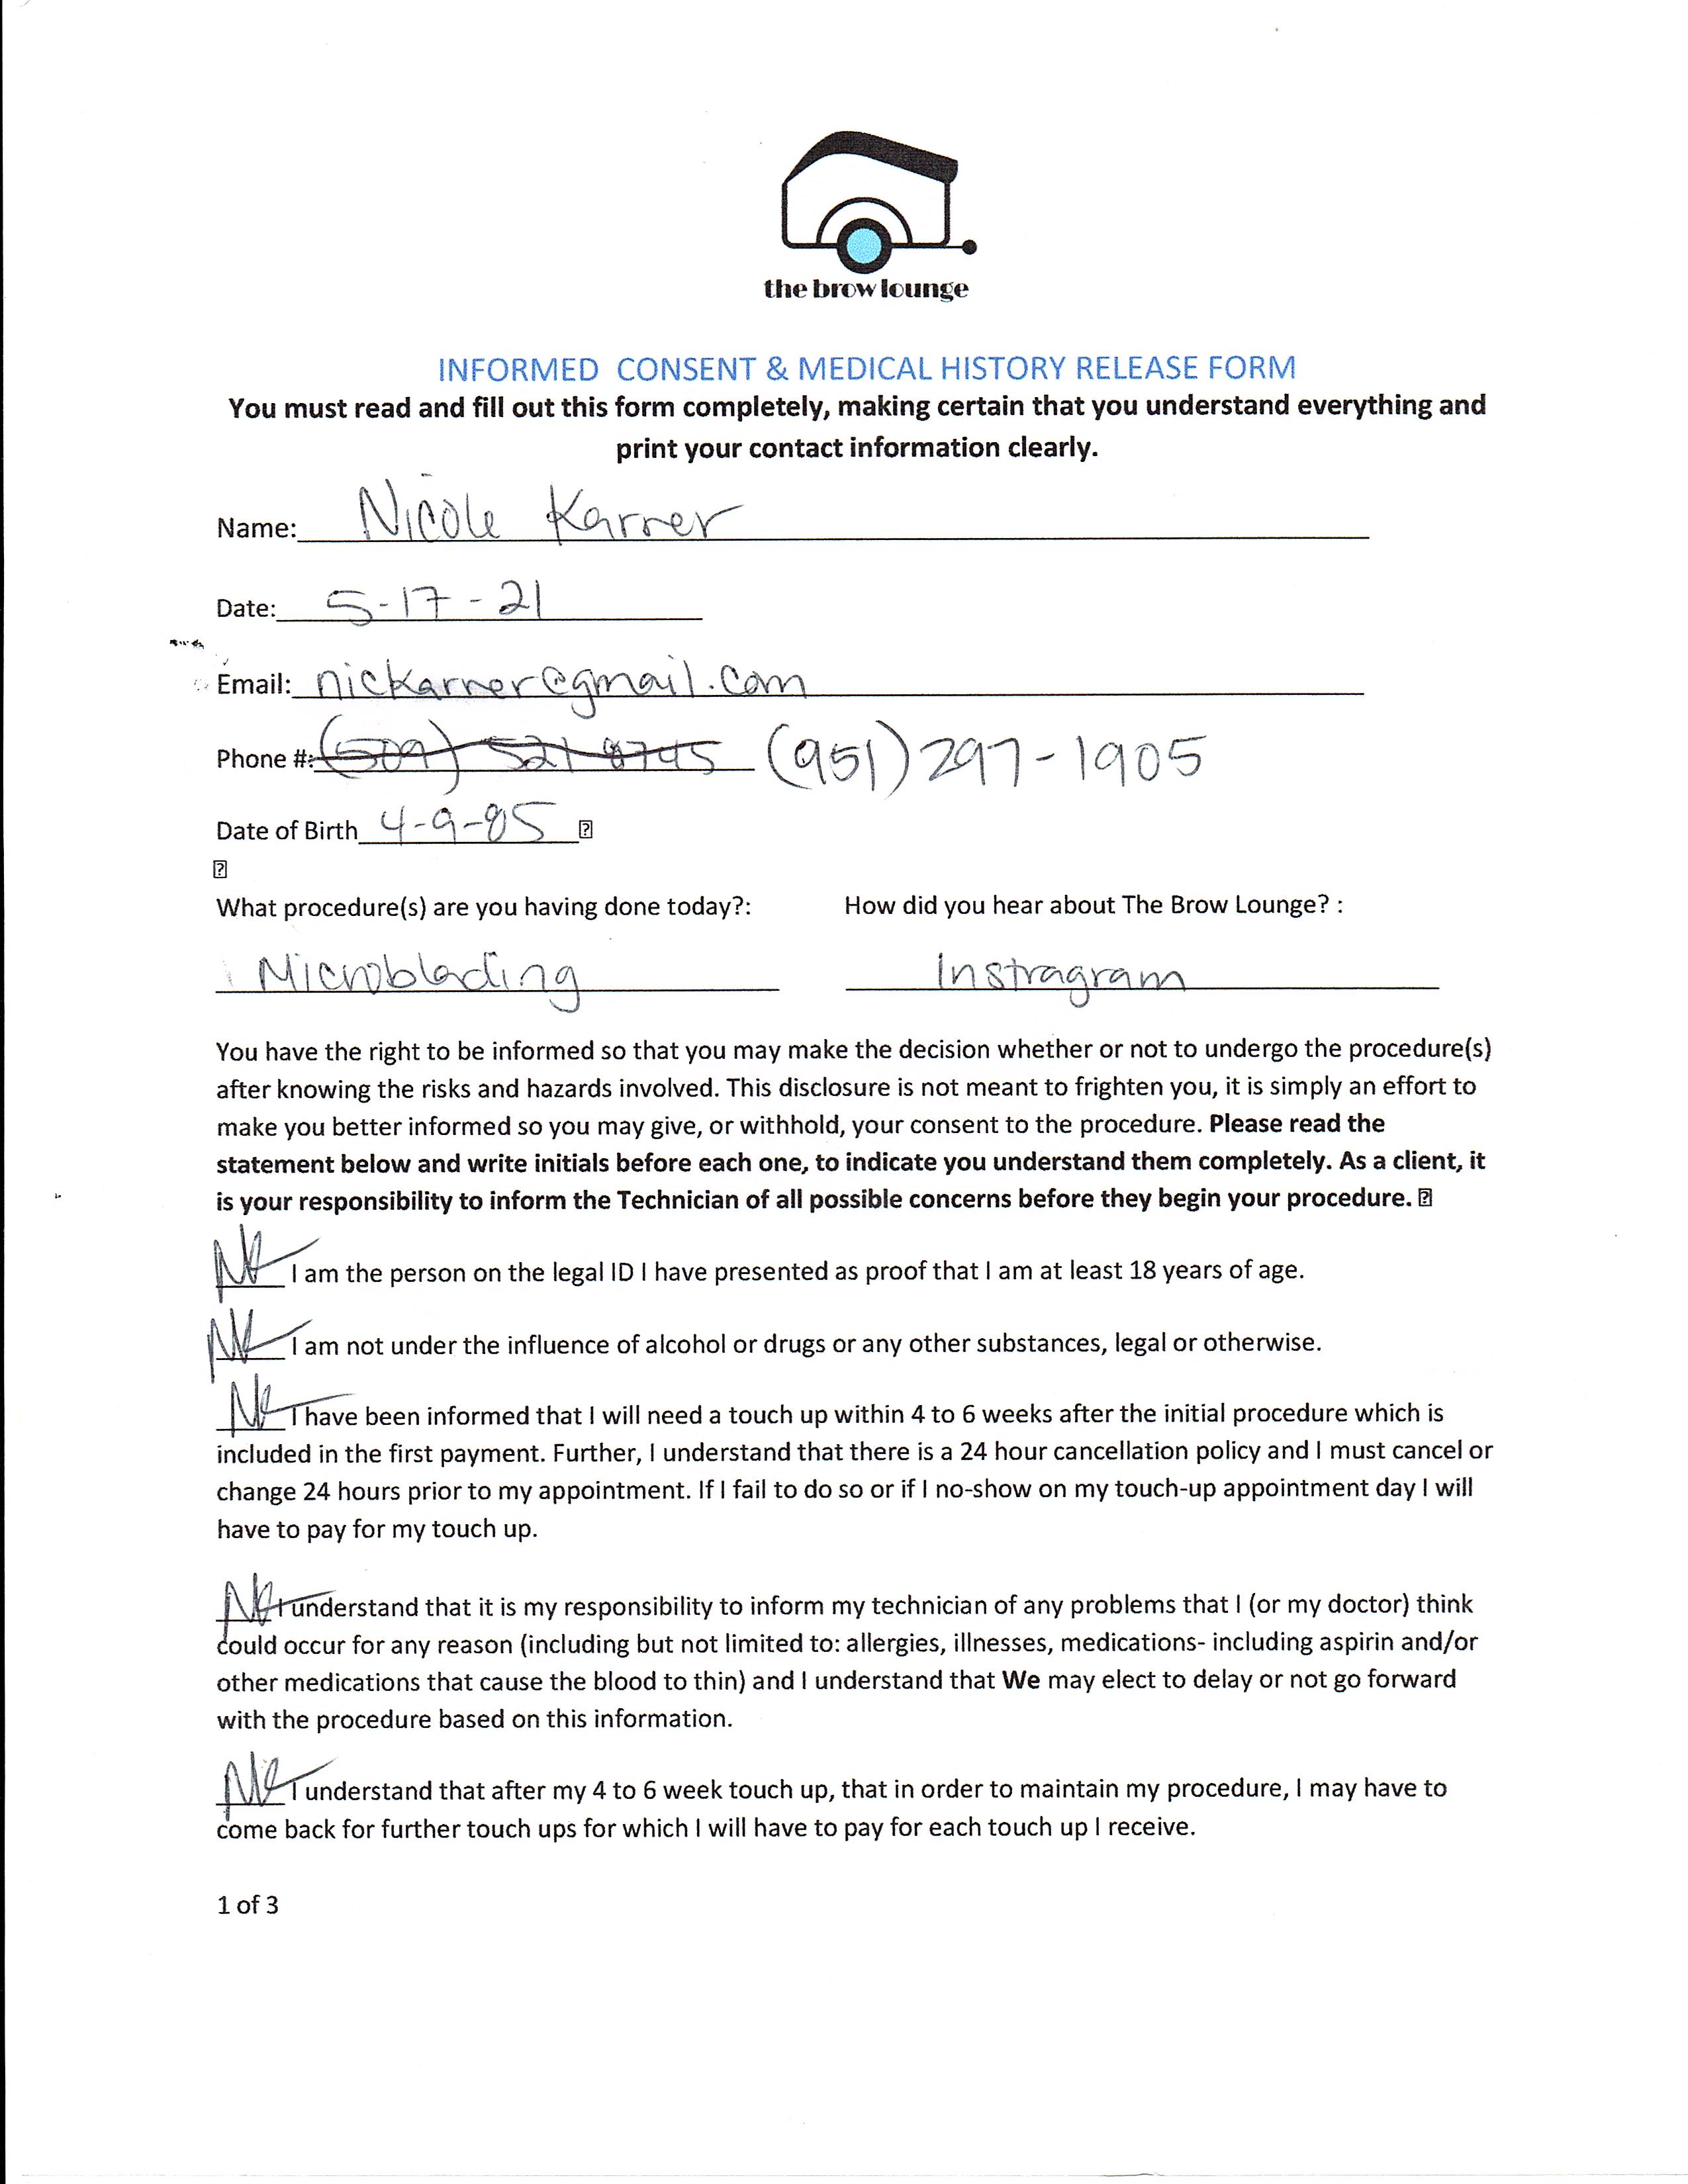 the brow lounge
INFORMED CONSENT & MEDICAL HISTORY RELEASE FORM
You must read and fill out this form completely, making certain that you understand everything and
print your contact information clearly.
Name: Nicole Karrer
Date: 5-17-21
Email: nickarrer@gmail.com
Phone #: (509) 521 8745 (951) 297-1905
Date of Birth 4-9-85
What procedure(s) are you having done today?: How did you hear about The Brow Lounge? :
Microblading Instragram
You have the right to be informed so that you may make the decision whether or not to undergo the procedure(s)
after knowing the risks and hazards involved. This disclosure is not meant to frighten you, it is simply an effort to
make you better informed so you may give, or withhold, your consent to the procedure. Please read the
statement below and write initials before each one, to indicate you understand them completely. As a client, it
is your responsibility to inform the Technician of all possible concerns before they begin your procedure.
NK I am the person on the legal ID I have presented as proof that I am at least 18 years of age.
NK I am not under the influence of alcohol or drugs or any other substances, legal or otherwise.
NK I have been informed that I will need a touch up within 4 to 6 weeks after the initial procedure which is
included in the first payment. Further, I understand that there is a 24 hour cancellation policy and I must cancel or
change 24 hours prior to my appointment. If I fail to do so or if I no-show on my touch-up appointment day I will
have to pay for my touch up.
NK I understand that it is my responsibility to inform my technician of any problems that I (or my doctor) think
could occur for any reason (including but not limited to: allergies, illnesses, medications- including aspirin and/or
other medications that cause the blood to thin) and I understand that We may elect to delay or not go forward
with the procedure based on this information.
NK I understand that after my 4 to 6 week touch up, that in order to maintain my procedure, I may have to
come back for further touch ups for which I will have to pay for each touch up I receive.
1 of 3